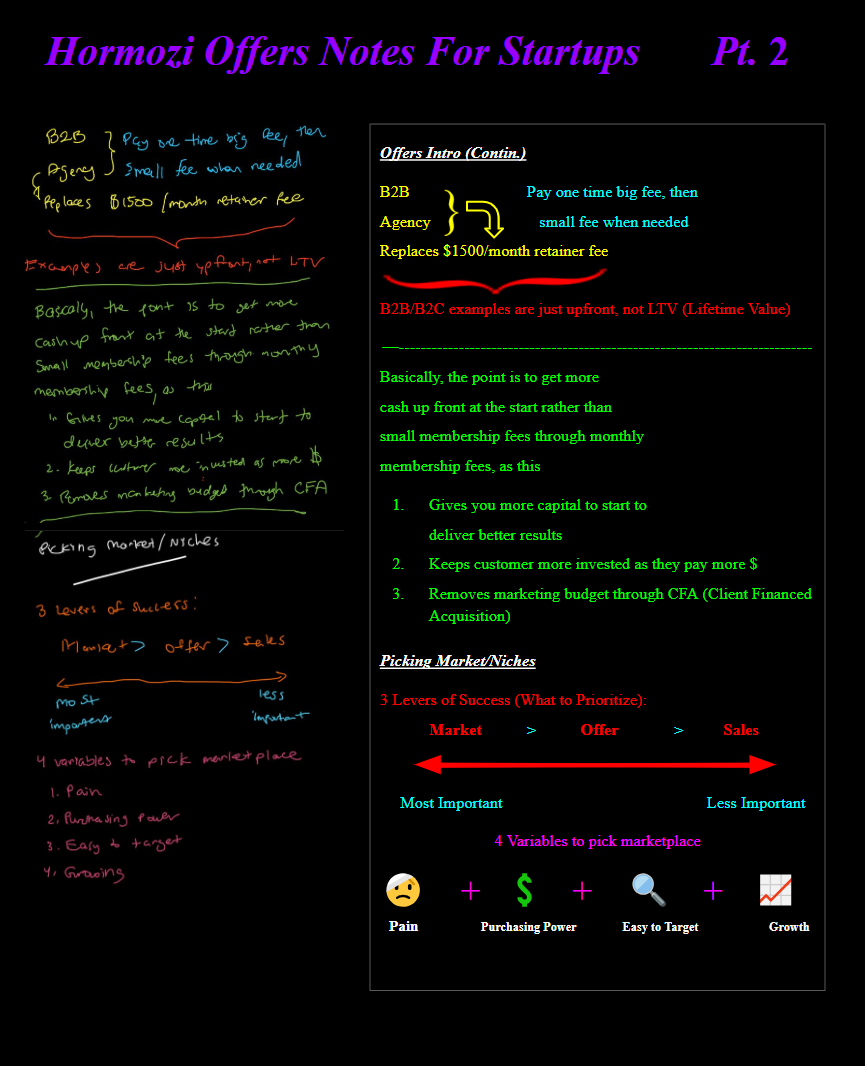 Hormozi Offers Notes For Startups Pt. 2
B2B
Pay one time big fee, then
Agency
small fee when needed
Replaces $1500 /month retainer fee
Examples are just upfront, not LTV
Bascally, the point is to get more
cash up front at the start rather than
small membership fees through monthly
membership fees, as this
1. Gives you more capital to start to
deliver better results
2. Keeps customer more invested as more $
3. Removes marketing budget through CFA
Picking Market/Niches
3 Levers of Success:
Market > offer > sales
most
important
less
important
4 variables to pick marketplace
1. Pain
2. Purchasing Power
3. Easy to target
4. Growing
Offers Intro (Contin.)
B2B
Pay one time big fee, then
Agency
small fee when needed
Replaces $1500/month retainer fee
B2B/B2C examples are just upfront, not LTV (Lifetime Value)
Basically, the point is to get more
cash up front at the start rather than
small membership fees through monthly
membership fees, as this
1. Gives you more capital to start to
deliver better results
2. Keeps customer more invested as they pay more $
3. Removes marketing budget through CFA (Client Financed
Acquisition)
Picking Market/Niches
3 Levers of Success (What to Prioritize):
Market > Offer > Sales
Most Important Less Important
4 Variables to pick marketplace
+ $ + +
Pain Purchasing Power Easy to Target Growth